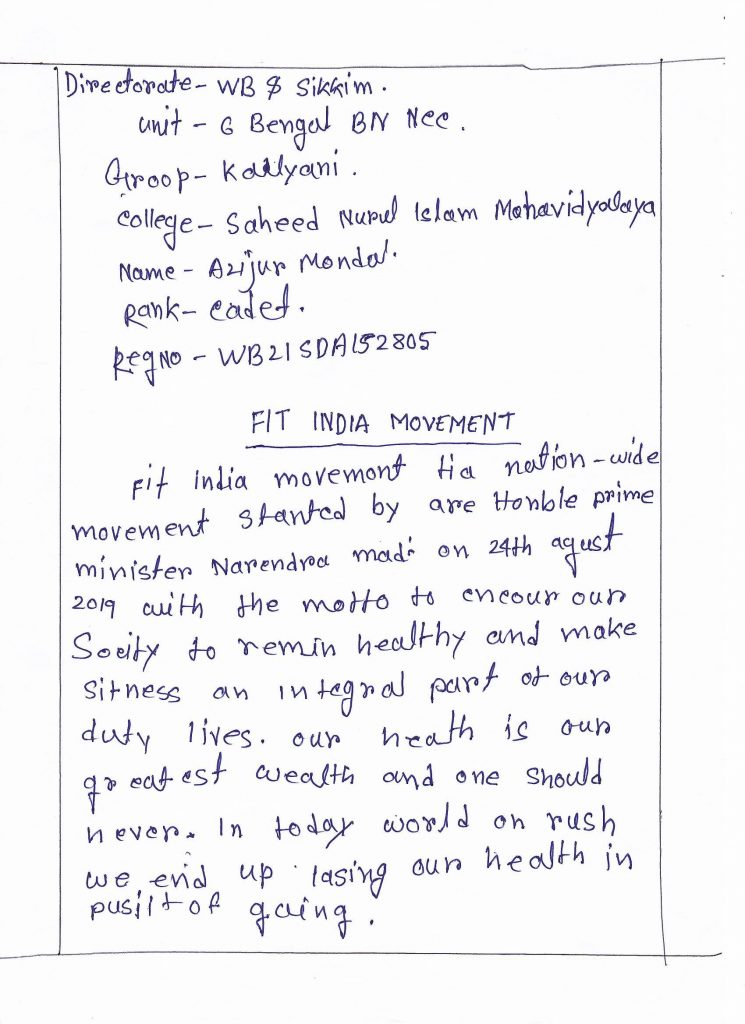 Directorate - WB & Sikkim.
unit - 6 Bengal BN Ncc.
Groop - Kallyani.
college - Saheed Nurul Islam Mohavidyalaya
Name - Azijur Mondal.
Rank - cadet.
Reg No - WB21SDA152805
FIT INDIA MOVEMENT
Fit india movemont nation - wide
movement stanted by are Honble prime
minister Narendra madi on 24th agust
2019 with the motto to encour our
Socity to remin healthy and make
sitness an integral part of our
duty lives. our heath is our
greatest wealth and one should
never. In today world on rush
we end up lasing our health in
of gaing.